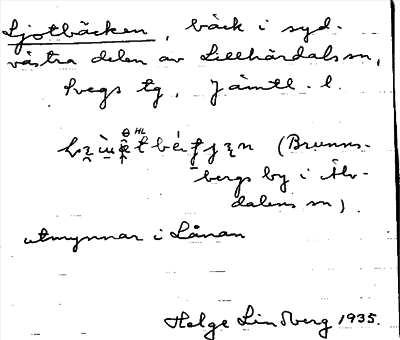 Ljotbäcken, bäck i syd-
västra delen av Lillhärdals sn,
Svegs tg, Jämtl. l.
(Brunns-
bergs by i Älv-
dalens sn)
utmynnar i Lånan
Helge Lindberg 1935.